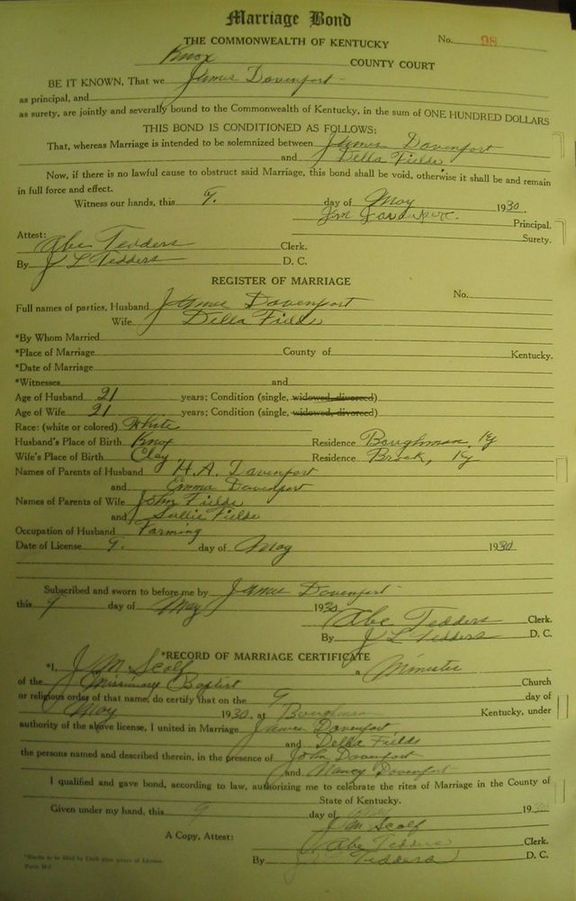 Marriage Bond
THE COMMONWEALTH OF KENTUCKY No. 98
Knox COUNTY COURT
BE IT KNOWN, That we James Davenport
as principal, and
as surety, are jointly and severally bound to the Commonwealth of Kentucky, in the sum of ONE HUNDRED DOLLARS
THIS BOND IS CONDITIONED AS FOLLOWS:
That, whereas Marriage is intended to be solemnized between James Davenport
and Della Fields
Now, if there is no lawful cause to obstruct said Marriage, this bond shall be void, otherwise it shall be and remain
in full force and effect.
Witness our hands, this 9. day of May 1930.
Principal.
Attest: Surety.
Abe Tedders Clerk.
By J L Tedders D. C.
REGISTER OF MARRIAGE
No.
Full names of parties, Husband James Davenport
Wife Della Fields
*By Whom Married
*Place of Marriage County of Kentucky.
*Date of Marriage
*Witnesses and
Age of Husband 21 years; Condition (single, widowed, divorced)
Age of Wife 21 years; Condition (single, widowed, divorced)
Race: (white or colored) White
Husband's Place of Birth Knox Residence Baughman, Ky
Wife's Place of Birth Clay Residence Brock, Ky
Names of Parents of Husband H.A. Davenport
and Emma Davenport
Names of Parents of Wife John Fields
and Sallie Fields
Occupation of Husband Farming
Date of License 9. day of May 1930.
Subscribed and sworn to before me by James Davenport
this 9 day of May 1930
Abe Tedders Clerk.
By J L Tedders D. C.
*RECORD OF MARRIAGE CERTIFICATE
*I, J M Scalf a Minister
of the Missionary Baptist Church
or religious order of that name, do certify that on the 9 day of
May 1930, at Baughman Kentucky, under
authority of the above license, I united in Marriage James Davenport
and Della Fields
the persons named and described therein, in the presence of John Davenport
and Nancy Davenport
I qualified and gave bond, according to law, authorizing me to celebrate the rites of Marriage in the County of
State of Kentucky.
Given under my hand, this 9 day of May 1930
J M Scalf
A Copy, Attest: Abe Tedders Clerk.
By J L Tedders D. C.